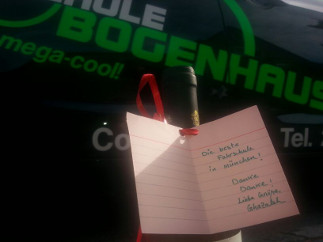 HULE
BOGENHAUS
mega-cool!
Co
Tel.
Die beste
Fahrschule
in München!
Danke
Danke!
Liebe Grüße